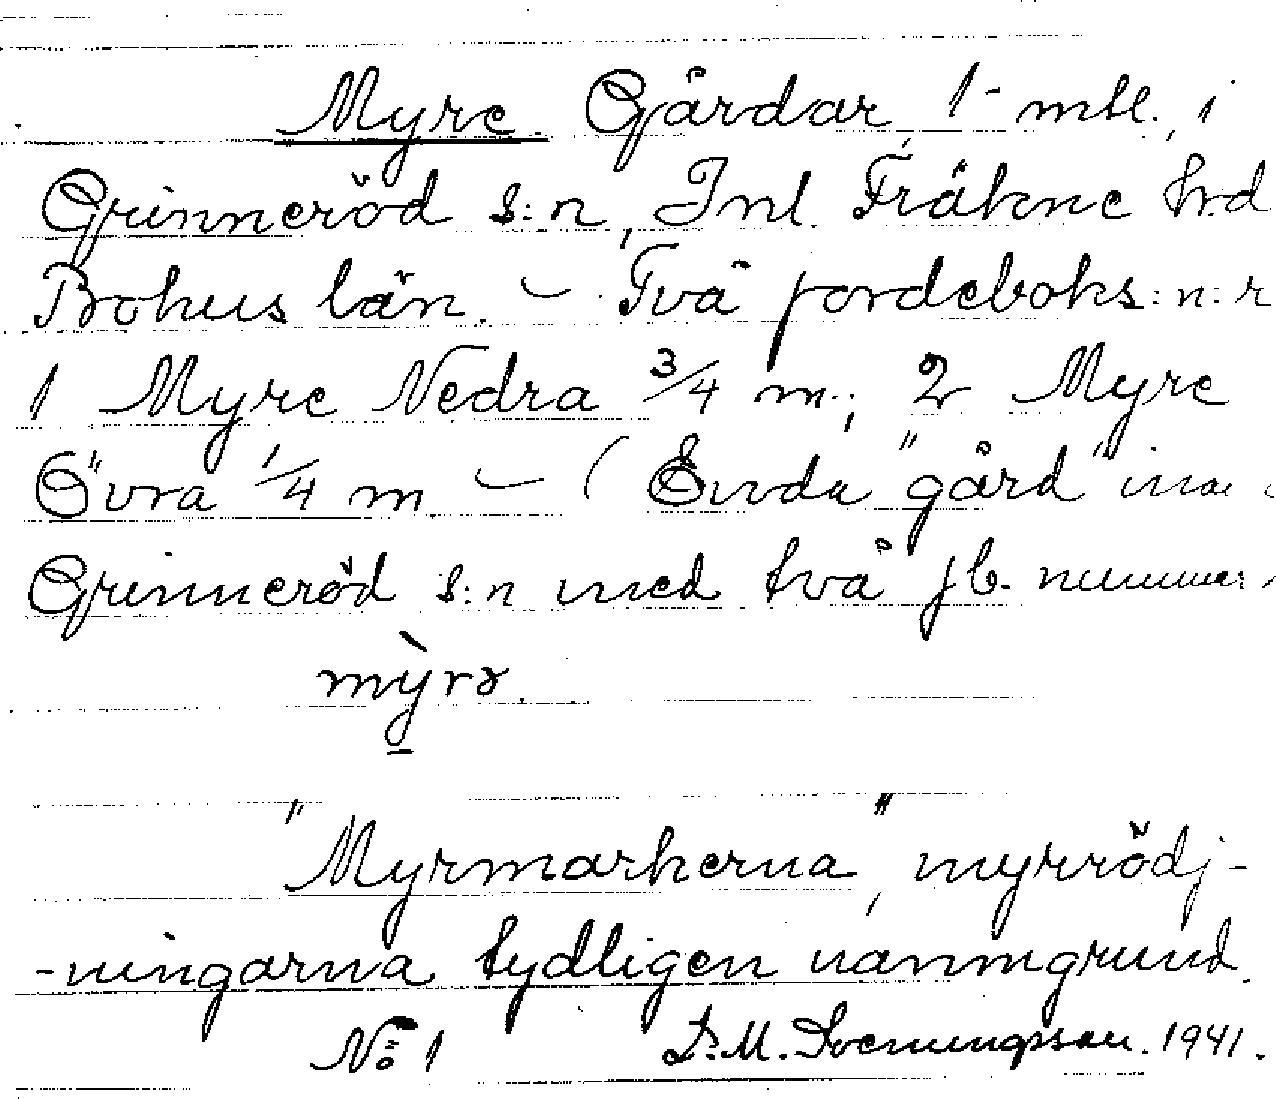 Myre Gårdar, 1 - mtl., i
Grinneröd s:n, Inl. Fräkne hrd
Bohus län. – Två jordeboks:n:r
1 Myre Nedra 3/4 m.; 2 Myre
Övra 1/4 m. – ( Enda "gård" inom
Grinneröd s:n med två jb. nummer
mỳrə.
"Myrmarkerna", myrrödj-
-ningarna tydligen namngrund.
No 1 D:M. Svenungsson. 1941.